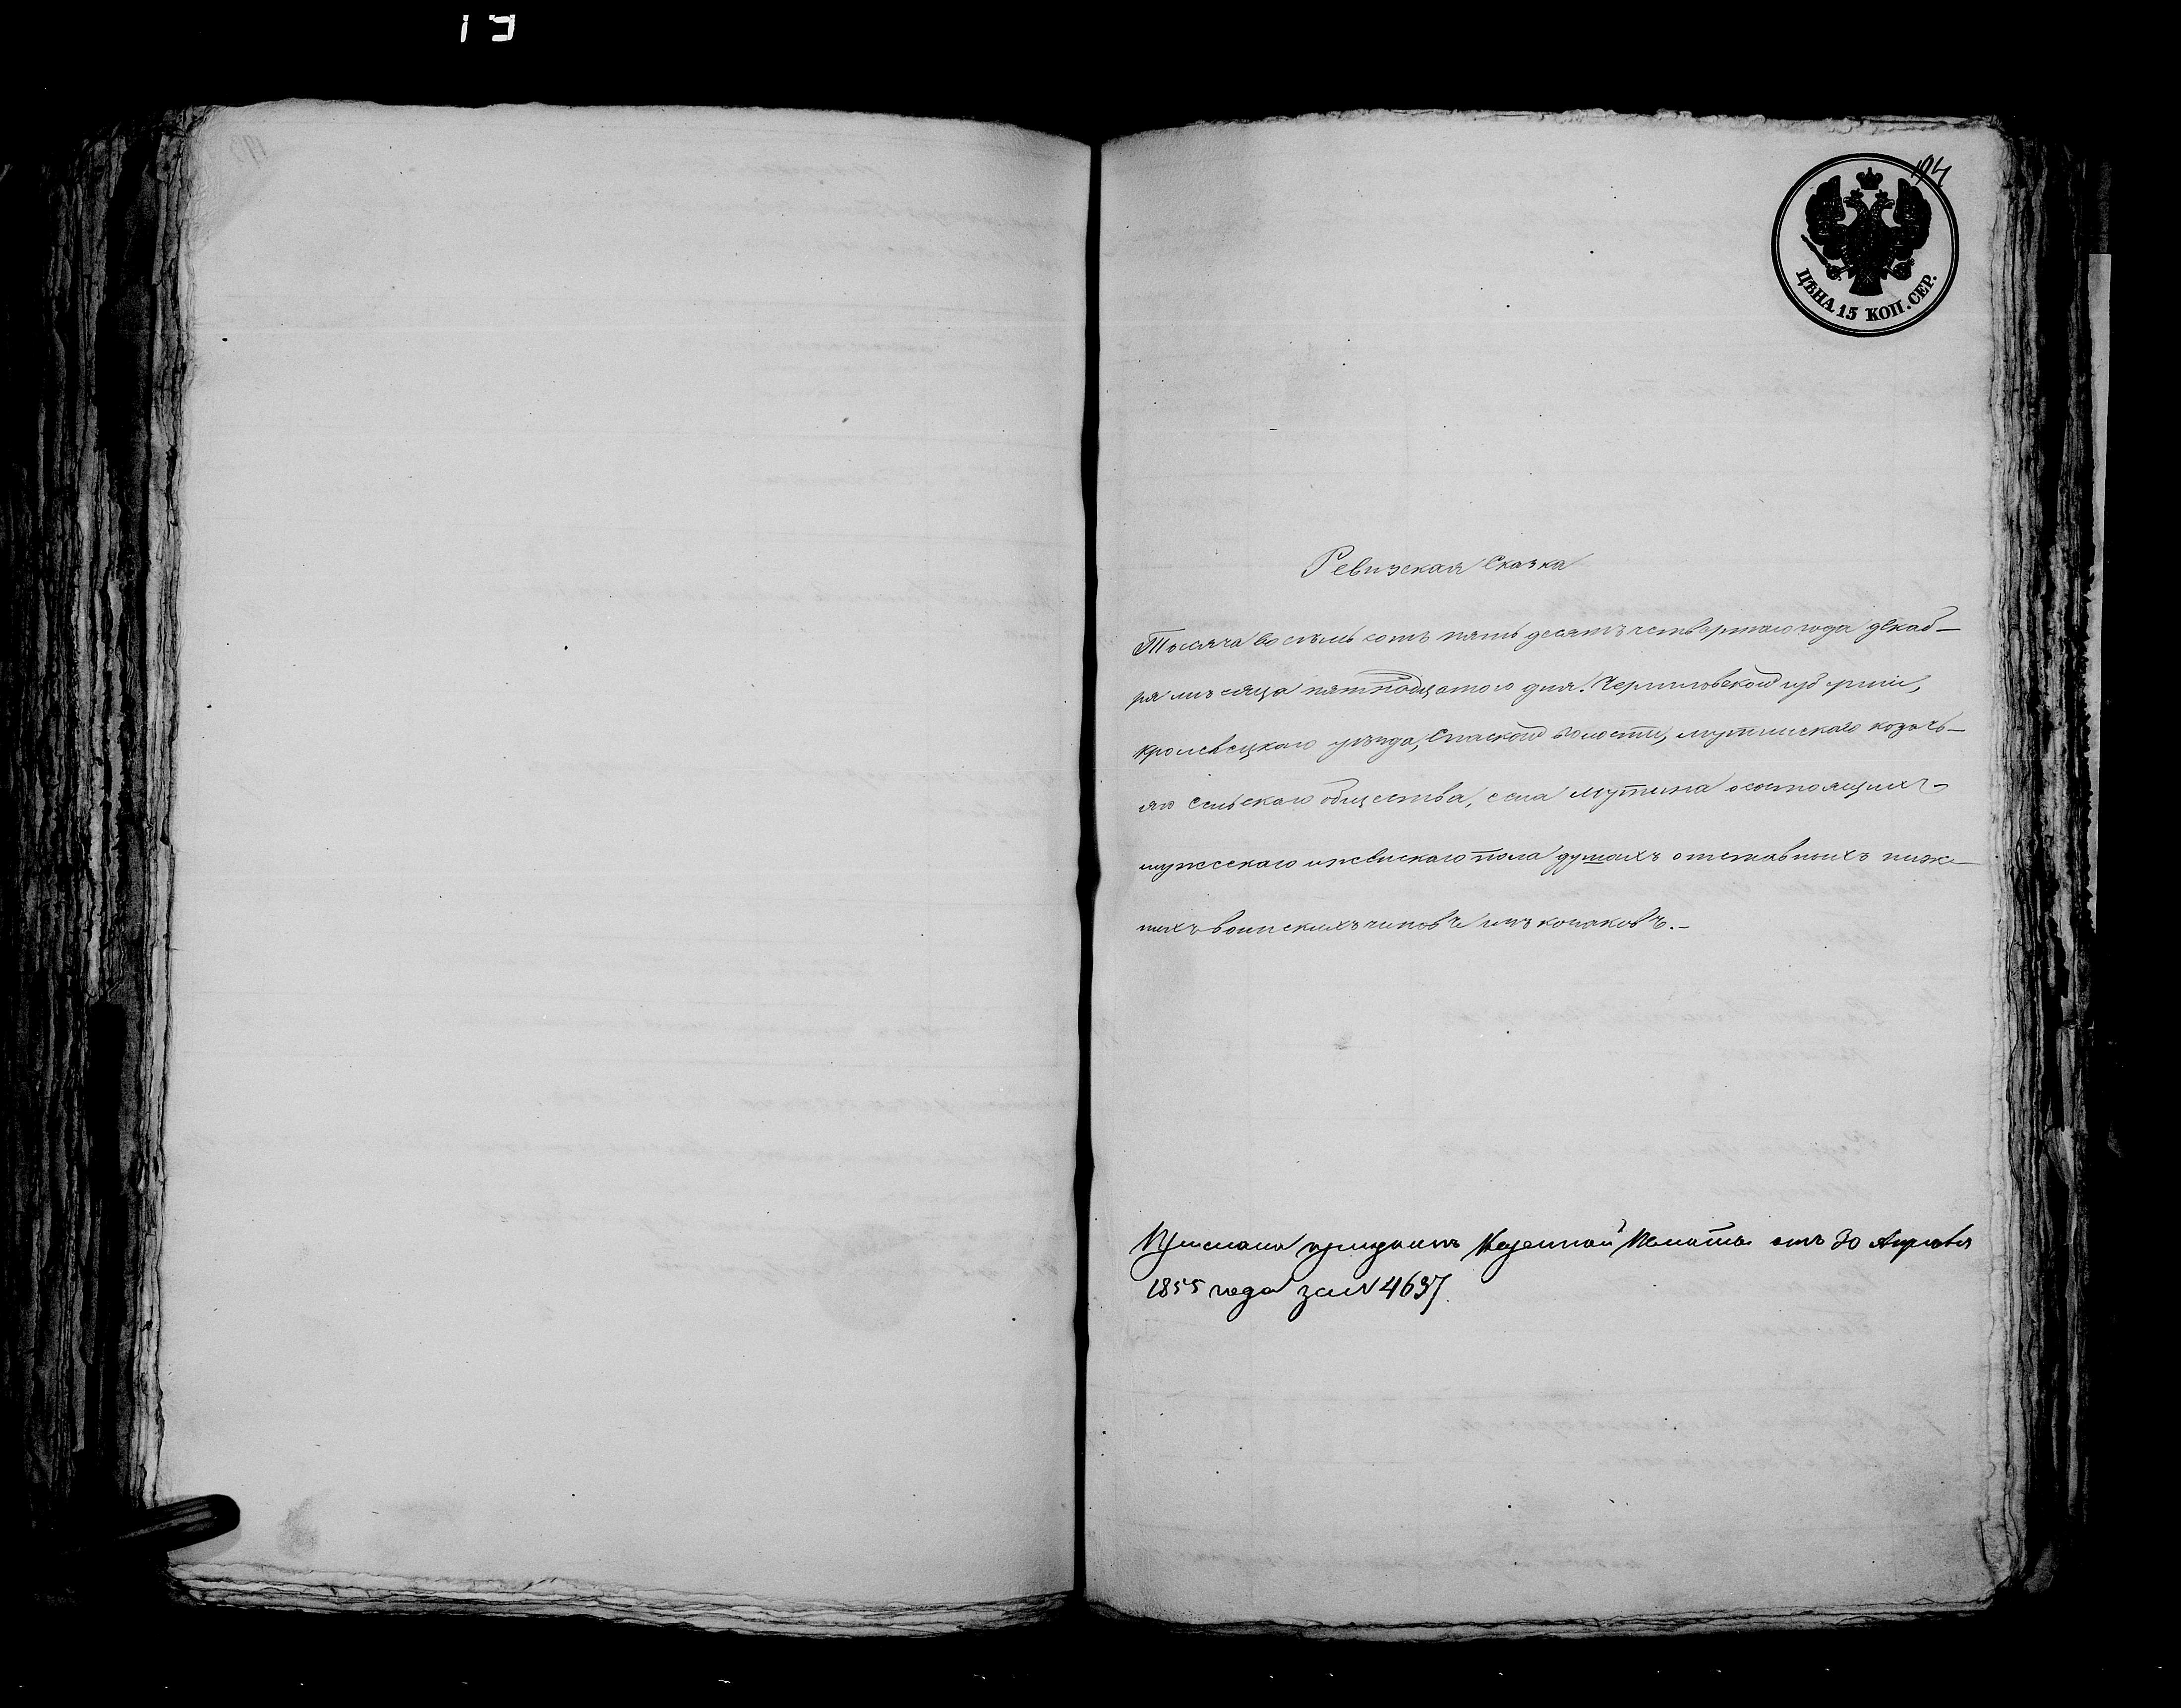 19
194
ЦѢНА 15 КОП. СЕР.
Ревизская Сказка
Тысяча восемь сотъ пять десятъ четвертаго года декаб-
ря мѣсяца пятнадцатого дня. Черниговской губерніи,
кролевецкаго уѣзда, Спаской волости, мутинскаго козачь-
яго Сельскаго общества, села Мутина о состоящихъ
мужескаго и женскаго пола душахъ отставныхъ ниж-
нихъ воинскихъ чиновъ изъ козаковъ.-
Казенной Палаты отъ 30 Апрѣля
1855 года за N 4697.